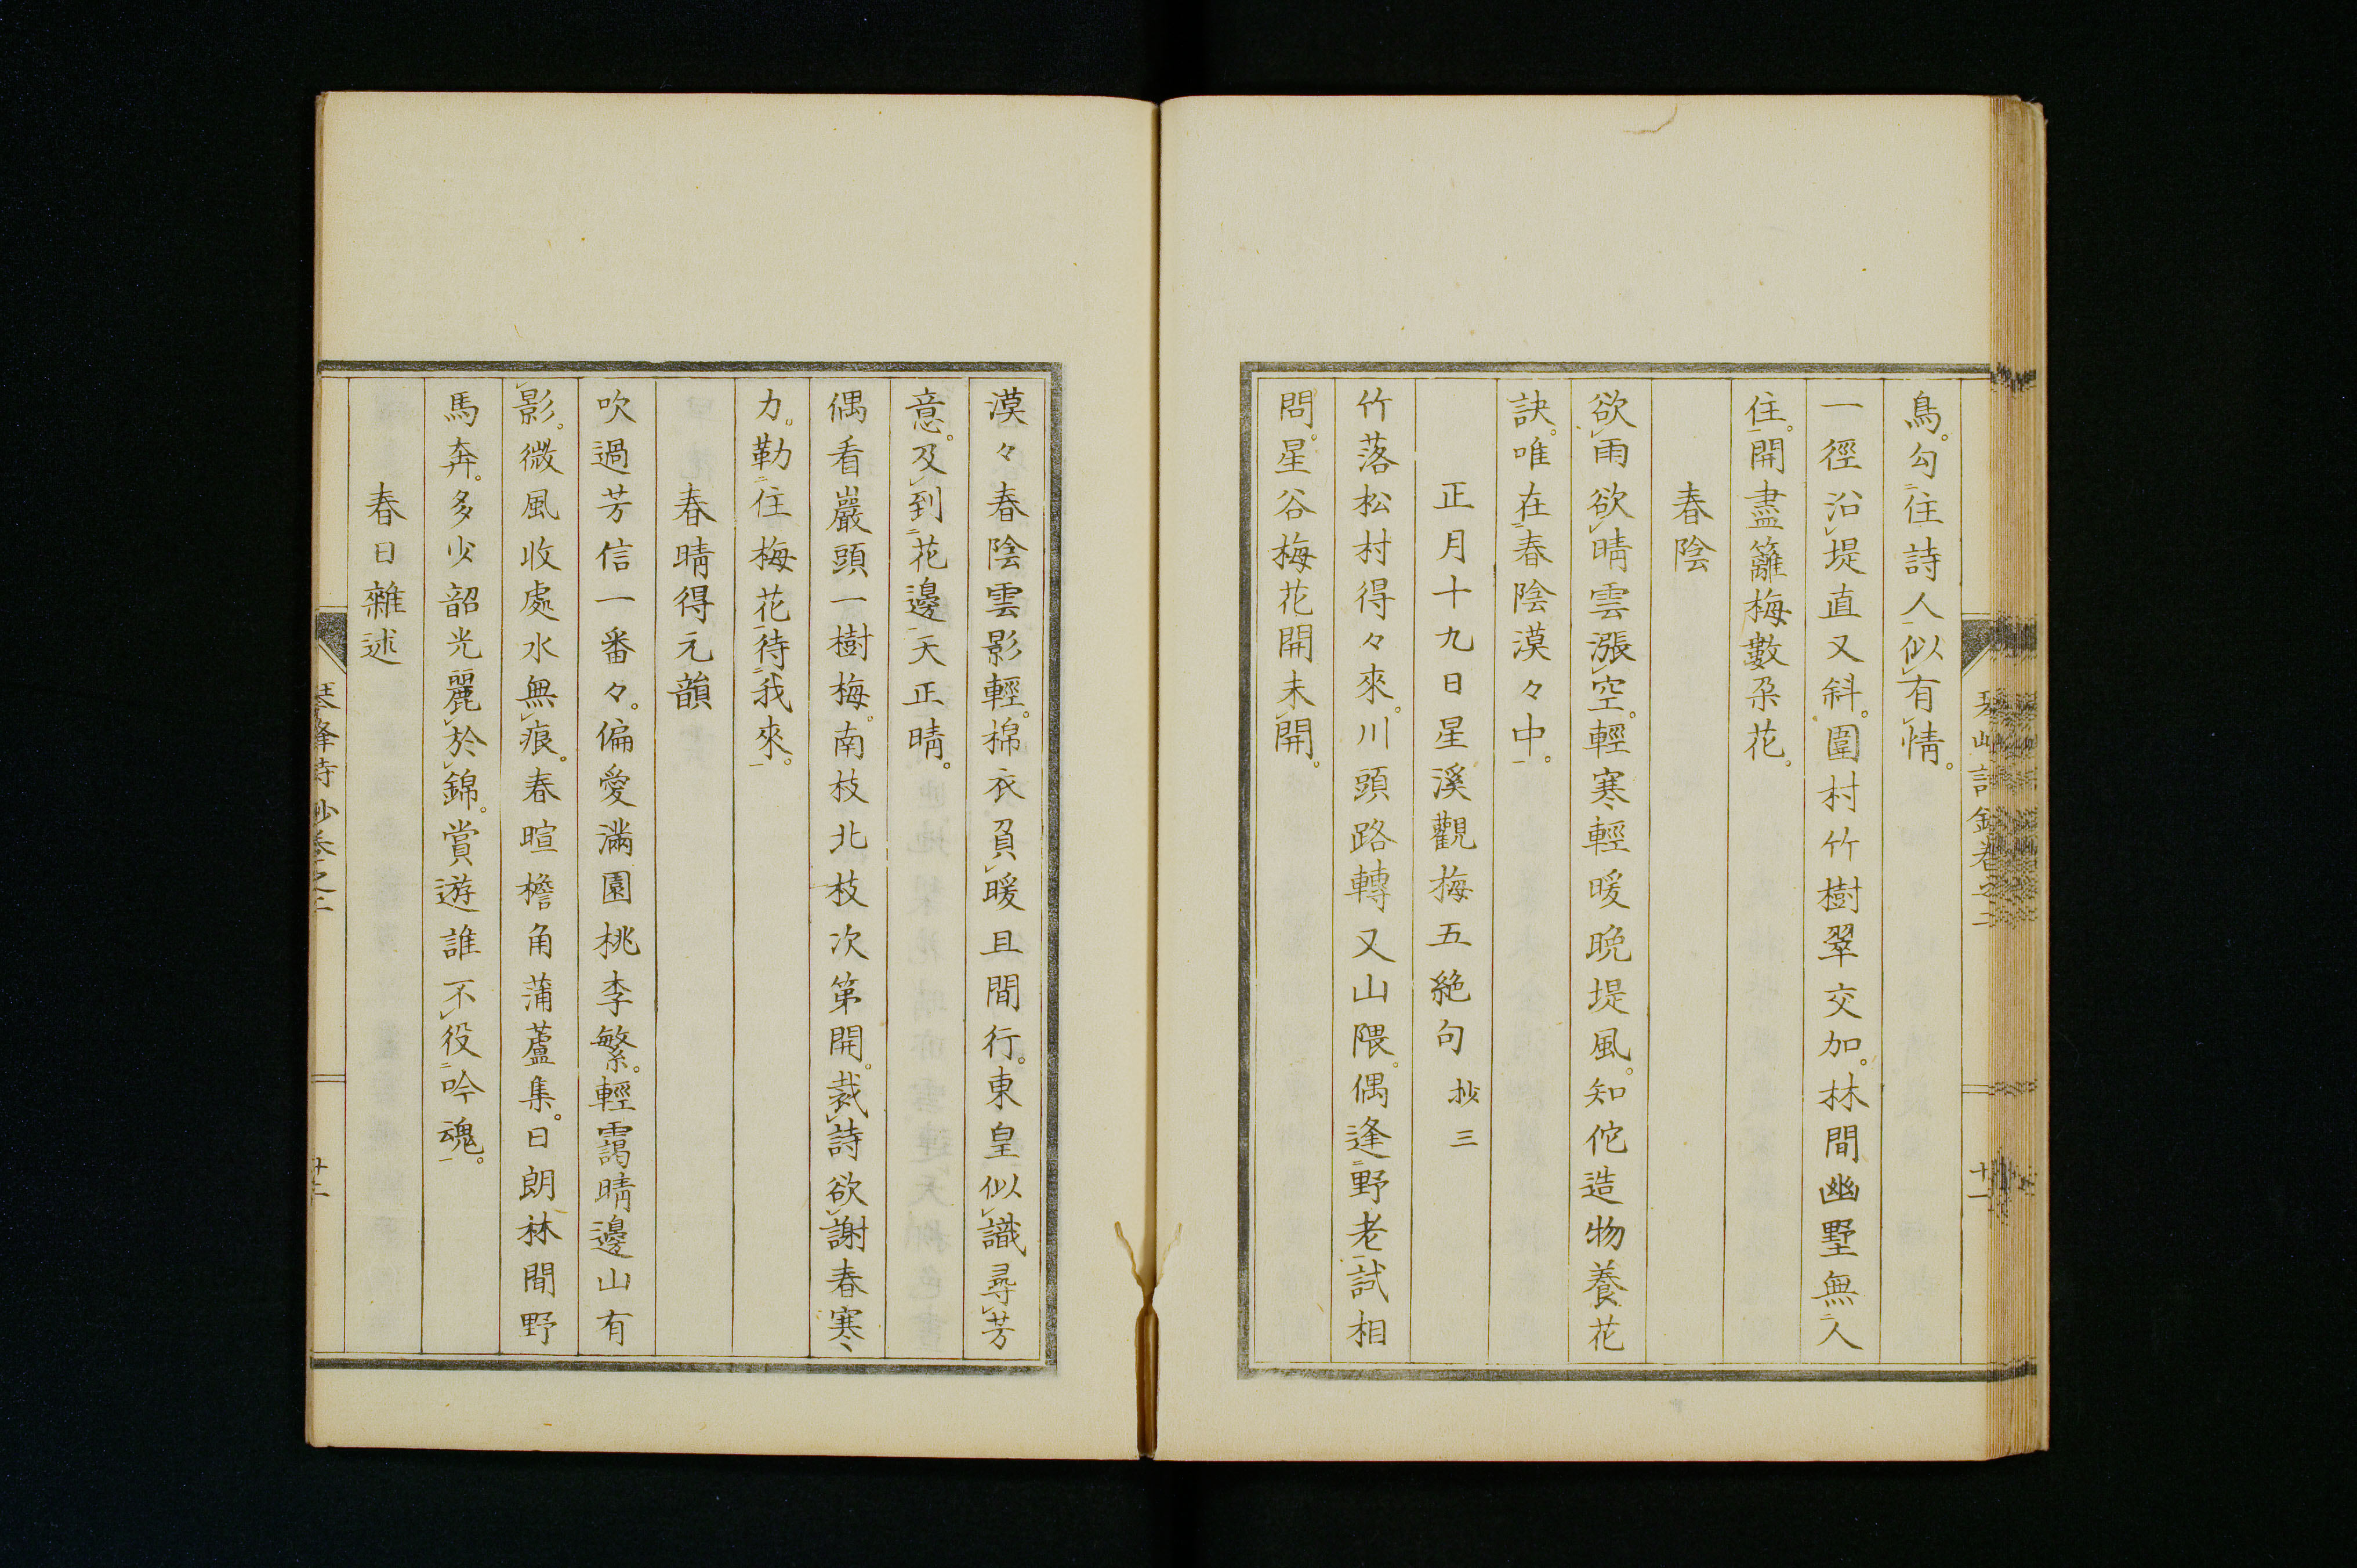 鳥。勾住詩人似有情。
一徑沿堤直又斜。圍村竹樹翠交加。林間幽墅無人
住。開盡籬梅數朶花。
春陰
欲雨欲晴雲漲空。輕寒輕暖晩堤風。知佗造物養花
訣。唯在春陰漠々中。
正月十九日星溪觀梅五絶句 抄三
竹落松村得々來。川頭路轉又山隈。偶逢野老試相
問。星谷梅花開未開。
漠々春陰雲影輕。棉衣負暖且間行。東皇似識尋芳
意。及到花邊天正晴。
偶看巖頭一樹梅。南枝北枝次第開。裁詩欲謝春寒
力。勒住梅花待我來。
春晴得元韻
吹過芳信一番々。偏愛滿園桃李繁。輕靄晴邊山有
影。微風收處水無痕。春暄檐角蒲蘆集。日朗林間野
馬奔。多少韶光麗於錦。賞遊誰不役吟魂。
春日雜述
琴峰詩鈔卷之二
十二